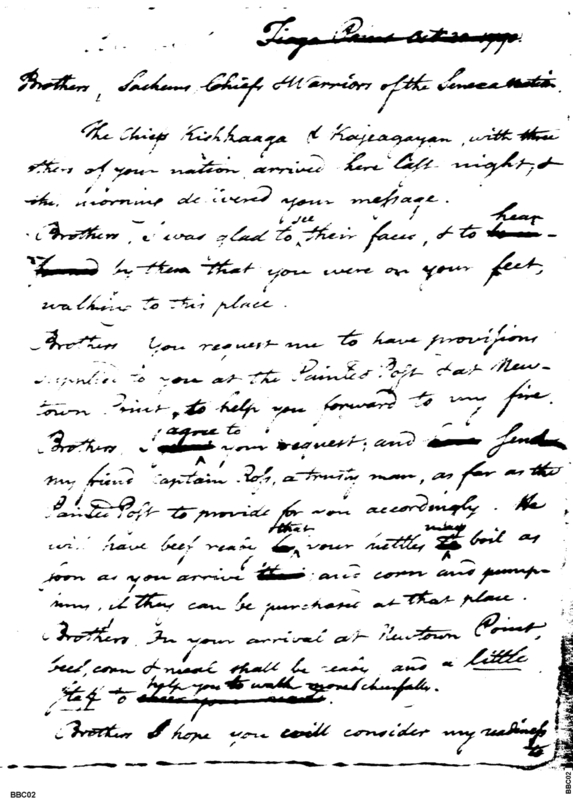 Tioga Point Oct. 1790.
Brothers, Sachems, Chiefs & Warriors of the Seneca nation.
The Chiefs Kishkaaga & Kajeagayan, with three
others of your nation arrived here last night, &
this morning delivered your message.
Brothers, I was glad to see their faces, & to hear
by them that you were on your feet,
walking to this place.
Brothers You request me to have provisions
supplied to you at the Painted Post & at New-
town Point, to help you forward to my fire.
Brothers, I agree to your request; and send
my friend Captain Ross, a trusty man, as far as the
Painted Post to provide for you accordingly. He
will have beef ready that your kettles may boil as
soon as you arrive and corn and pump-
ins, if they can be purchased at that place.
Brothers, On your arrival at Newtown Point,
beef, corn & meal shall be ready, and a little
to help you to walk more chearfully.
Brothers I hope you will consider my readiness
to
BBC02
BBC02